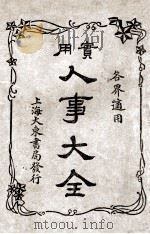 實用
各界適用
人事大全
上海大東書局發行